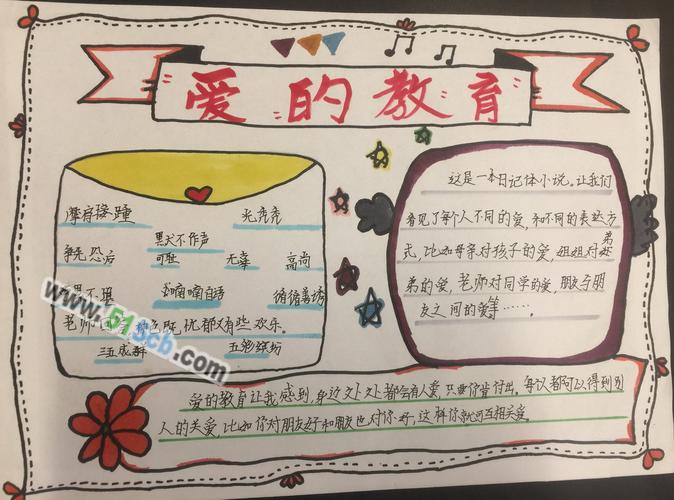 爱的教育
摩肩接踵 光秃秃
黑天不作声
争先恐后 可耻 无辜 高尚
喃喃自语 循循善诱
老师 色既忧郁又有些欢乐。
三五成群 五彩缤纷
这是一本日记体小说。让我们
看见了每个人不同的爱,和不同的表达方
式,比如母亲对孩子的爱,姐姐对弟
弟的爱,老师对同学的爱,朋友与朋
友之间的爱等……。
爱的教育让我感到,身边处处都会有人爱,只要你肯付出。每次都可以得到别
人的关爱,比如你对朋友好和朋友也对你好,这样你就可互相关爱。
www.51scb.com